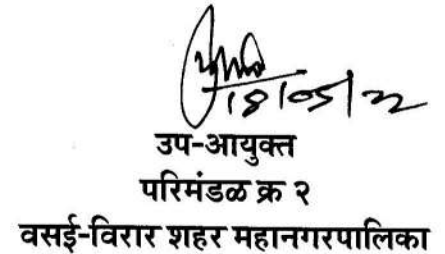 18/05/22
उप-आयुक्त
परिमंडळ क्र २
वसई-विरार शहर महानगरपालिका